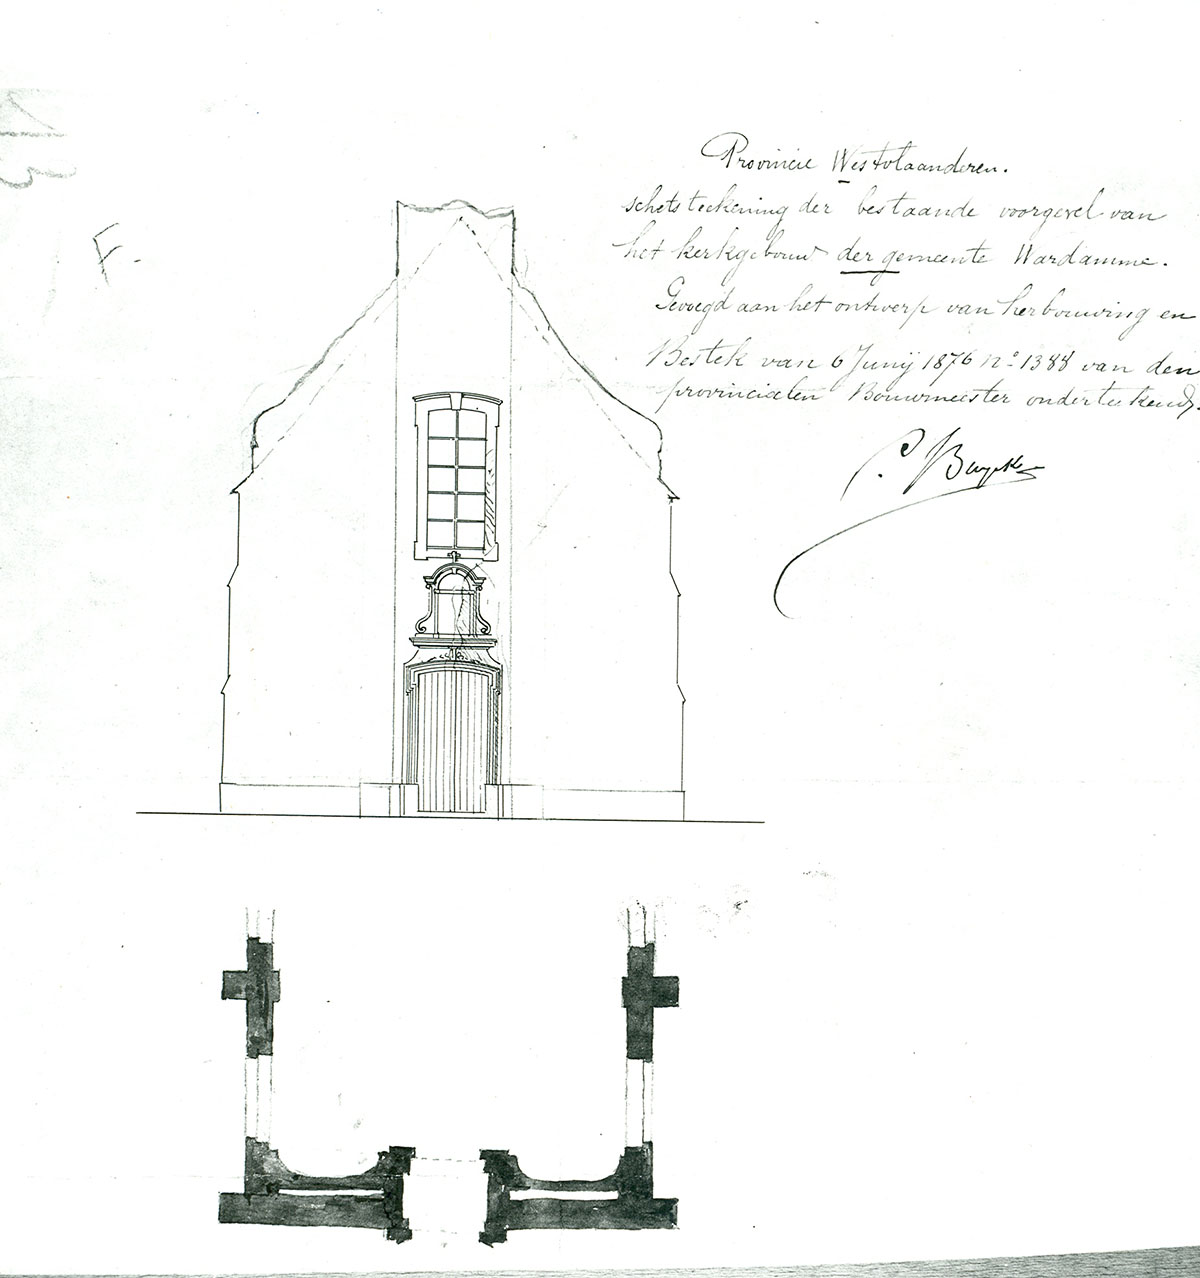 Provincie Westvlaanderen.
schetsteekening der bestaande voorgevel van
het kerkgebouw der gemeente Wardamme.
Gevoegd aan het ontwerp van herbouwing en
Bestek van 6 Junij 1876 n° 1388 van den
provincialen Bouwmeester onderteekend.
P. Buyck
F.